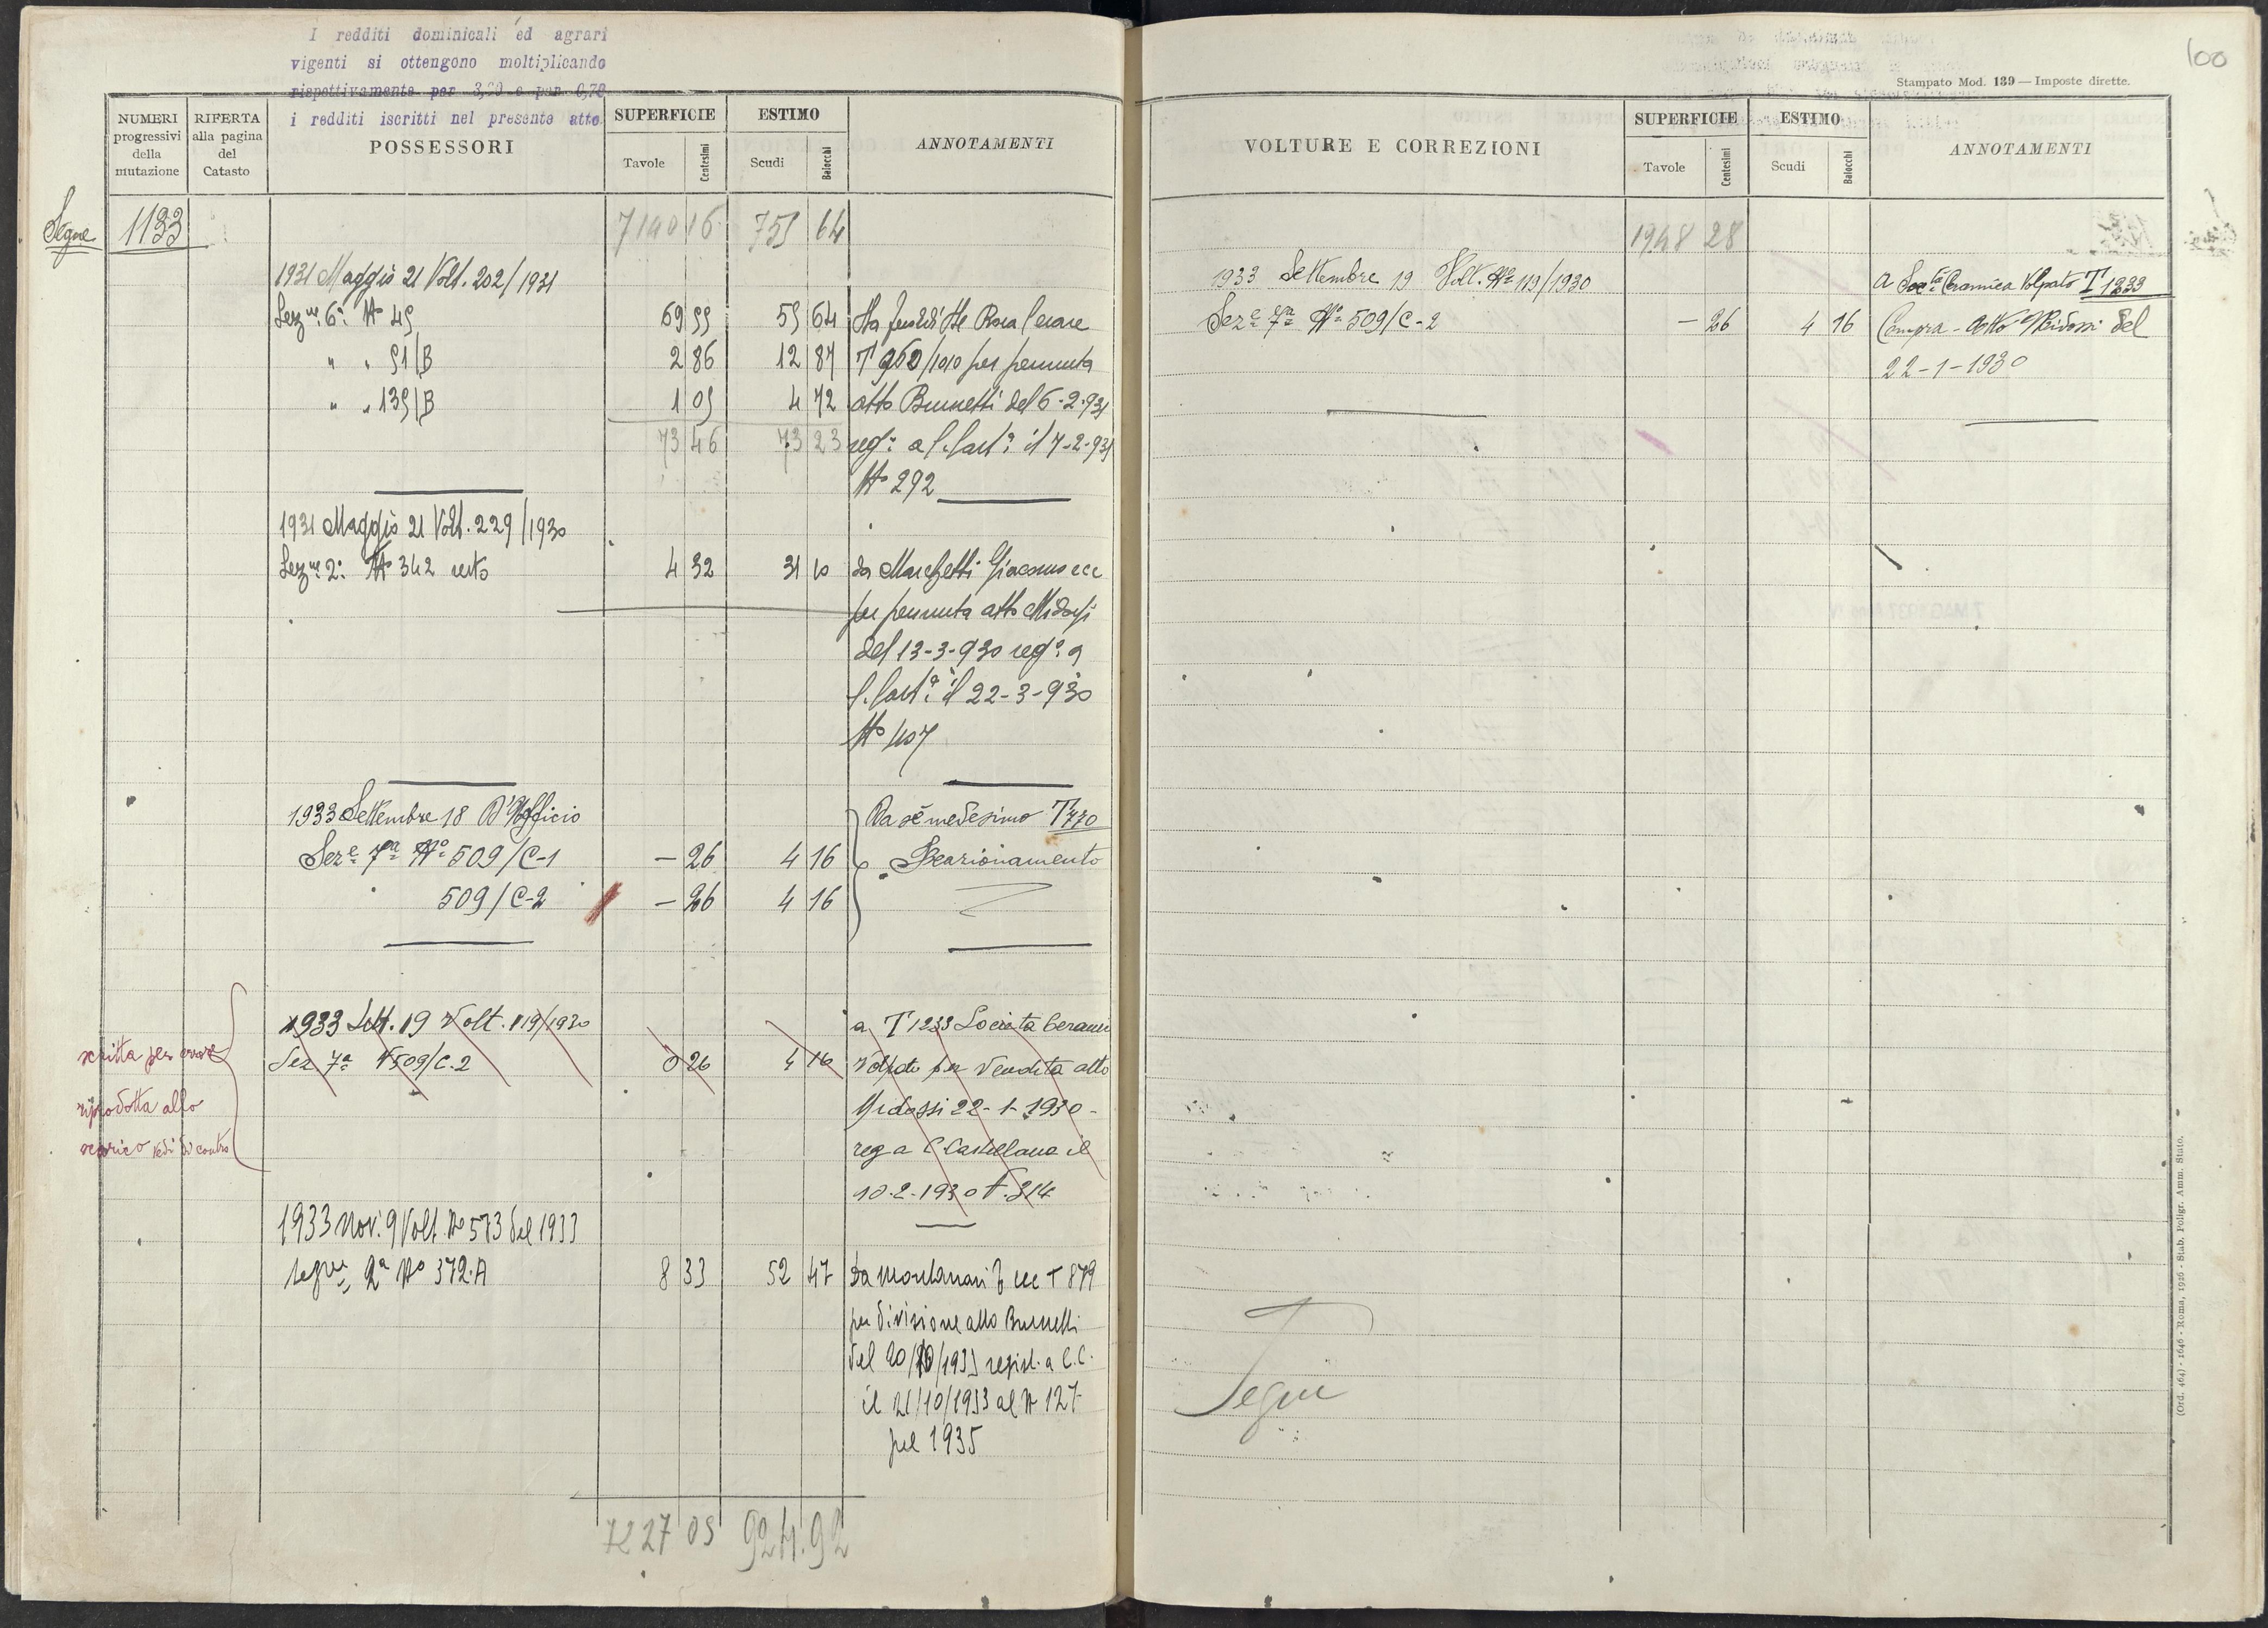 I redditi dominicali ed agrari
vigenti si ottengono moltiplicando
rispettivamente per 3,20 e per 0,78
i redditi iscritti nel presente atto
NUMERI progressivi della mutazione
RIFERTA alla pagina del Catasto
POSSESSORI
SUPERFICIE
Tavole
Centesimi
ESTIMO
Scudi
Baiocchi
ANNOTAMENTI
Segue 1133
7140 16 755 64
1931 Maggio 21 Volt. 202/1931
Sezne 6a No 45 69 55 55 64
" " 51/B 2 86 12 87 T 960/1010 per permuta
" " 135/B 1 05 4 72 atto Brunetti del 6-2-931
73 46 73 23 rega a C. Casta il 7-2-931
No 292
1931 Maggio 21 Volt. 229/1930
Sezne 2a No 342 resto 4 32 31 10 da Marchetti Giacomo ecc
per permuta atto Midossi
del 13-3-930 rega a
C. Casta il 22-3-930
No 407
1933 Settembre 18 D'Ufficio Da sé medesimo T 770
Seze 7a No 509/C-1 — 26 4 16 Frazionamento
509/C-2 — 26 4 16
1933 Sett. 19 Volt. 119/1930 a T 1233 Società Ceramica
Sez 7a N 509/C.2 0 26 4 16 Volpato per Vendita atto
Midossi 22-1-1930 -
reg a C Castellana il
10-2-1930 N. 314
scritta per errore
riprodotta allo
scarico vedi di contro
1933 Nov. 9 Volt No 573 del 1933
Segue 2a No 372.A 8 33 52 47 da Montanari F ecc T 879
per divisione atto Brunetti
del 20/10/1933 regist. a C.C.
il 21/10/1933 al N 127
pel 1935
7227 05 924.92
100
Stampato Mod. 139 — Imposte dirette.
VOLTURE E CORREZIONI
SUPERFICIE
Tavole
Centesimi
ESTIMO
Scudi
Baiocchi
ANNOTAMENTI
1948 28
1933 Settembre 19 Volt. No 119/1930 a Socta Ceramica Volpato T 1233
Seze 7a No 509/C-2 — 26 4 16 Compra - Atto Midossi del
22-1-1930
Segue
(Ord. 464) - 1646 - Roma, 1926 - Stab. Poligr. Amm. Stato.